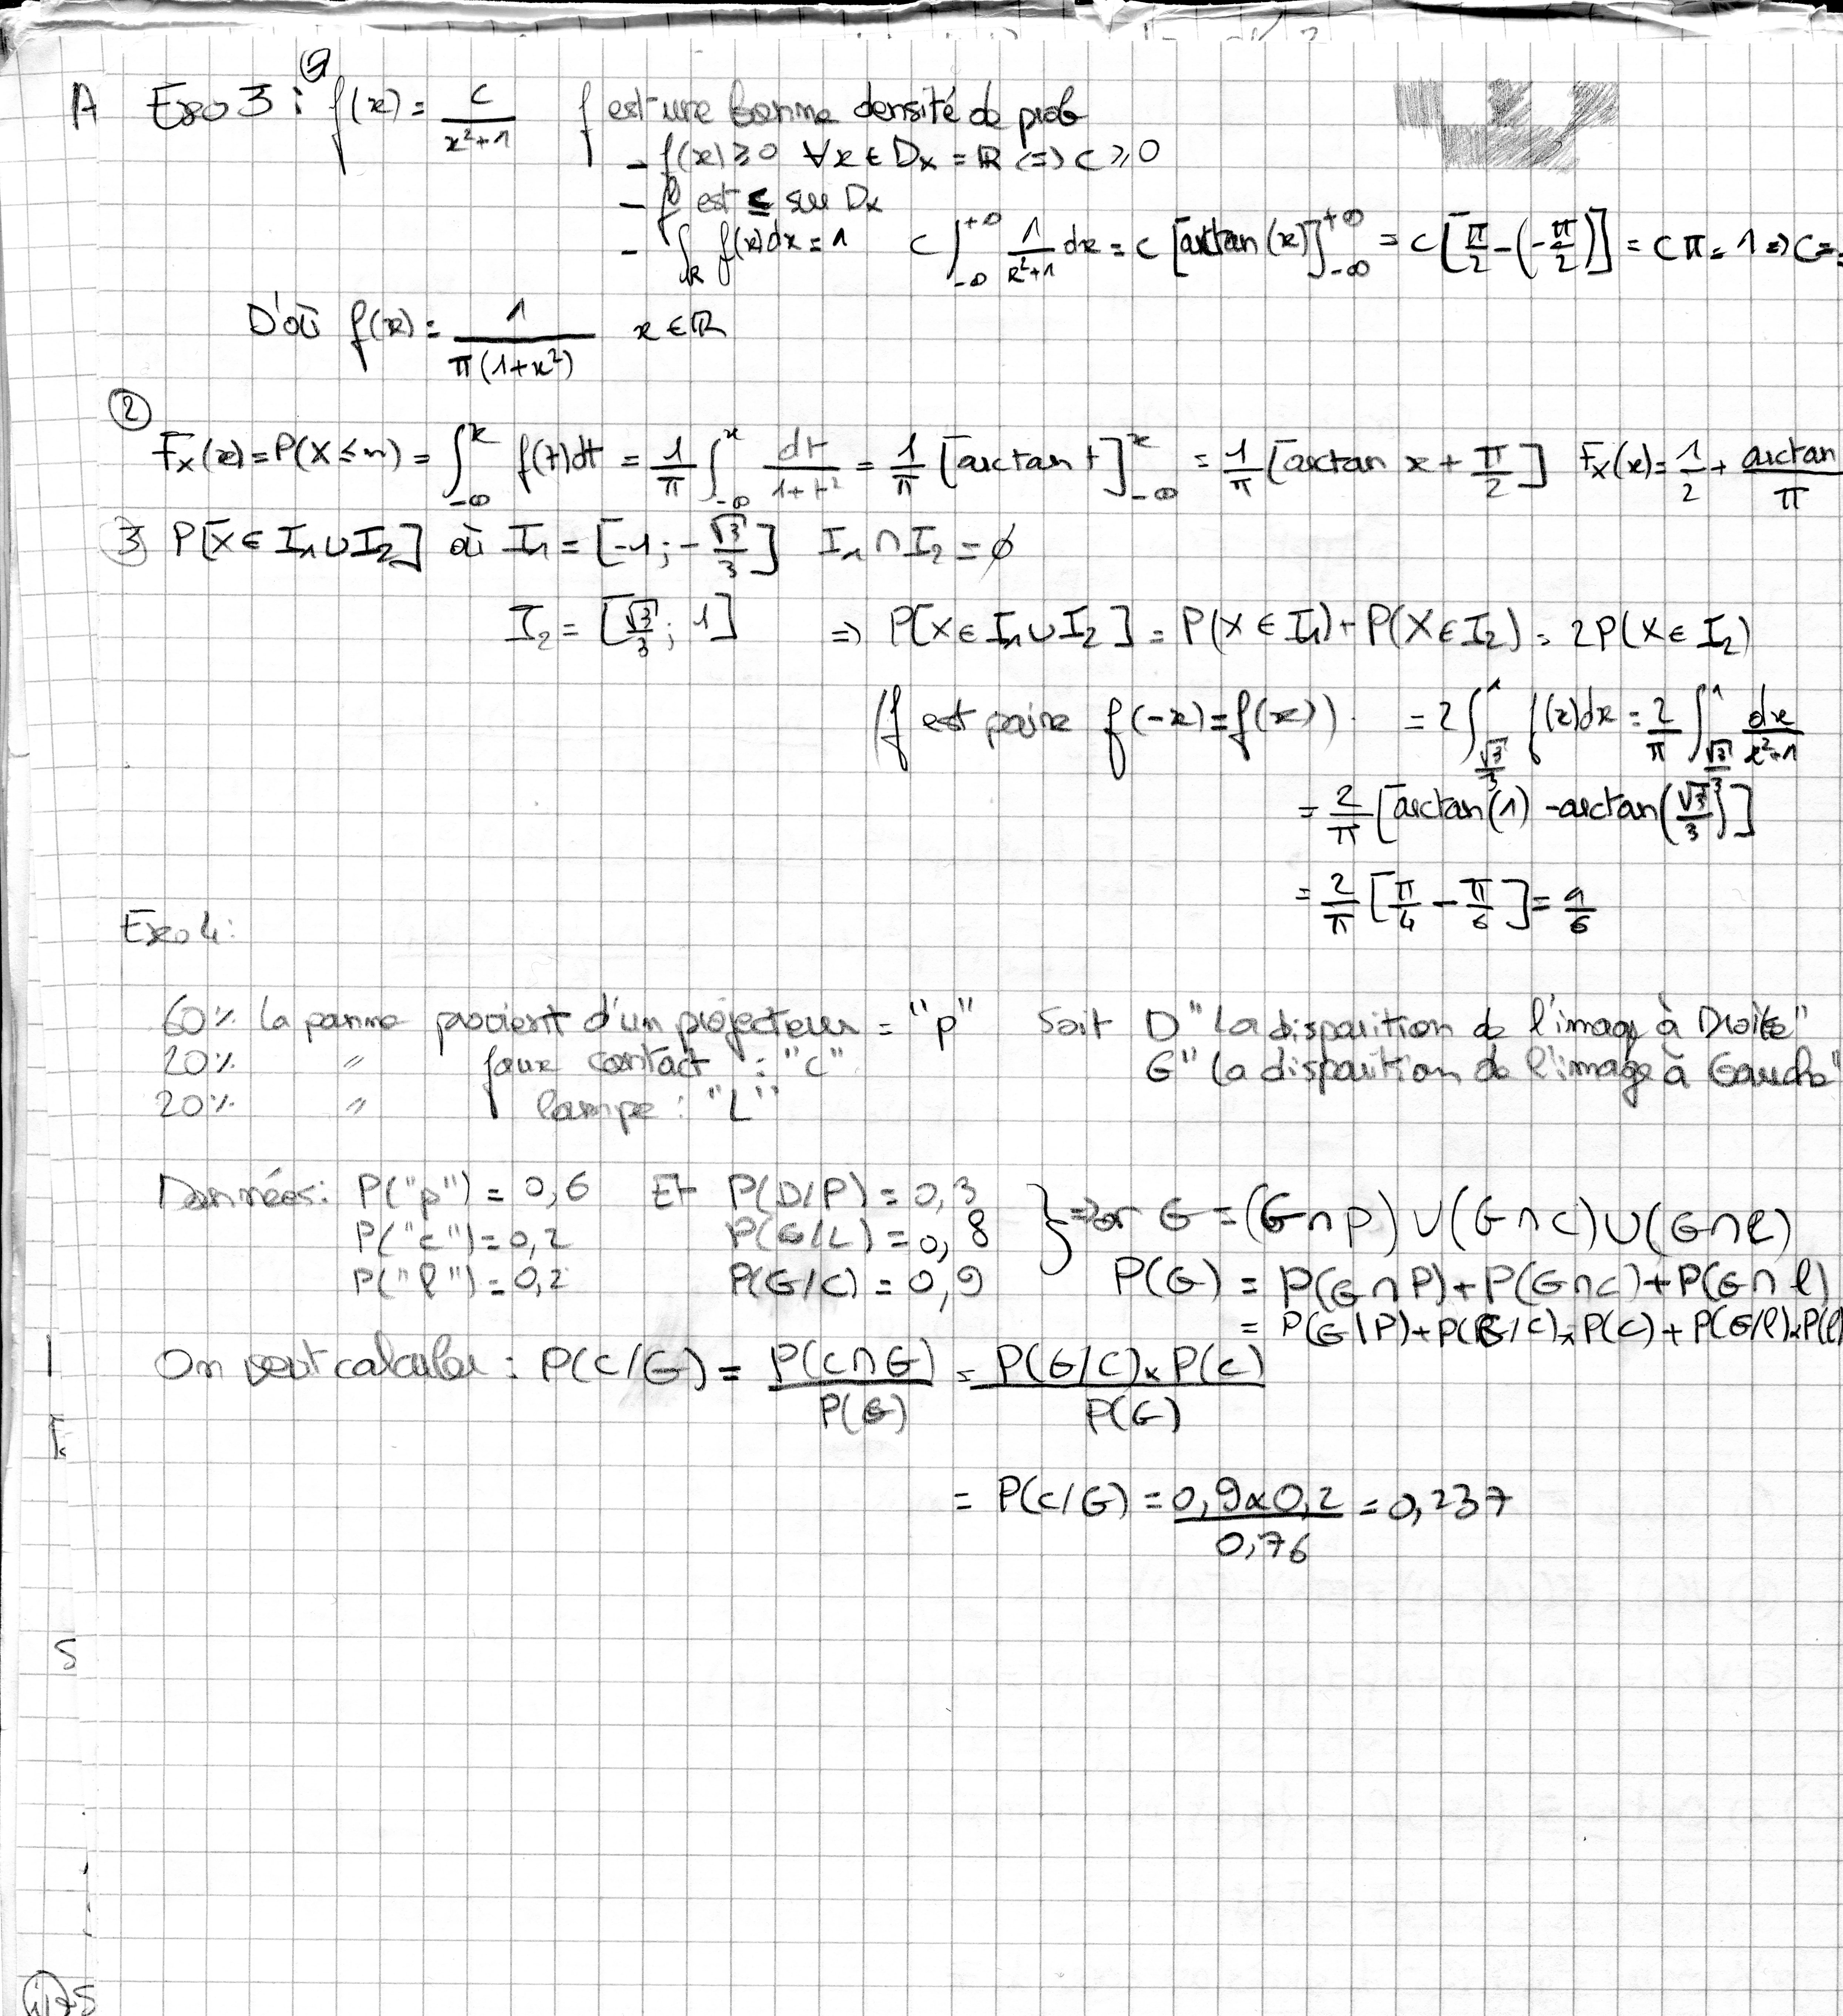 A Exo 3 : ① f(x) = c/(x²+1) f est une bonne densité de prob
- f(x) ≥ 0 ∀x ∈ Dx = ℝ (=) c ≥ 0
- f est sur Dx
- ∫_ℝ f(x)dx = 1 c ∫_{-∞}^{+∞} 1/(x²+1) dx = c [arctan(x)]_{-∞}^{+∞} = c [π/2 - (-π/2)] = cπ = 1 => C =
D'où f(x) = 1/(π(1+x²)) x ∈ ℝ
②
Fx(x) = P(X ≤ x) = ∫_{-∞}^{x} f(t)dt = 1/π ∫_{-∞}^{x} dt/(1+t²) = 1/π [arctan t]_{-∞}^{x} = 1/π [arctan x + π/2] Fx(x) = 1/2 + arctan/π
3) P[X ∈ I₁ ∪ I₂] où I₁ = [-1; -√3/3] I₁ ∩ I₂ = ∅
I₂ = [√3/3; 1] => P[X ∈ I₁ ∪ I₂] = P(X ∈ I₁) + P(X ∈ I₂) = 2P(X ∈ I₂)
(f est paire f(-x) = f(x)) = 2 ∫_{√3/3}^{1} f(x)dx = 2/π ∫_{√3/3}^{1} dx/(x²+1)
= 2/π [arctan(1) - arctan(√3/3)]
= 2/π [π/4 - π/6] = 1/6
Exo 4:
60% la panne provient d'un projecteur = "p" Soit D "La disparition de l'image à Droite"
20% " faux contact : "c" G "La disparition de l'image à Gauche"
20% " lampe : "L"
Données: P("p") = 0,6 Et P(D/P) = 0,3 } => or G = (G∩p) ∪ (G∩c) ∪ (G∩l)
P("c") = 0,2 P(G/L) = 0,8
P("l") = 0,2 P(G/C) = 0,9 P(G) = P(G∩P) + P(G∩c) + P(G∩l)
= P(G/P) + P(G/C) × P(C) + P(G/l) × P(l)
On veut calculer : P(C/G) = P(C∩G)/P(G) = P(G/C) × P(C)/P(G)
= P(C/G) = 0,9 × 0,2/0,76 = 0,237
S